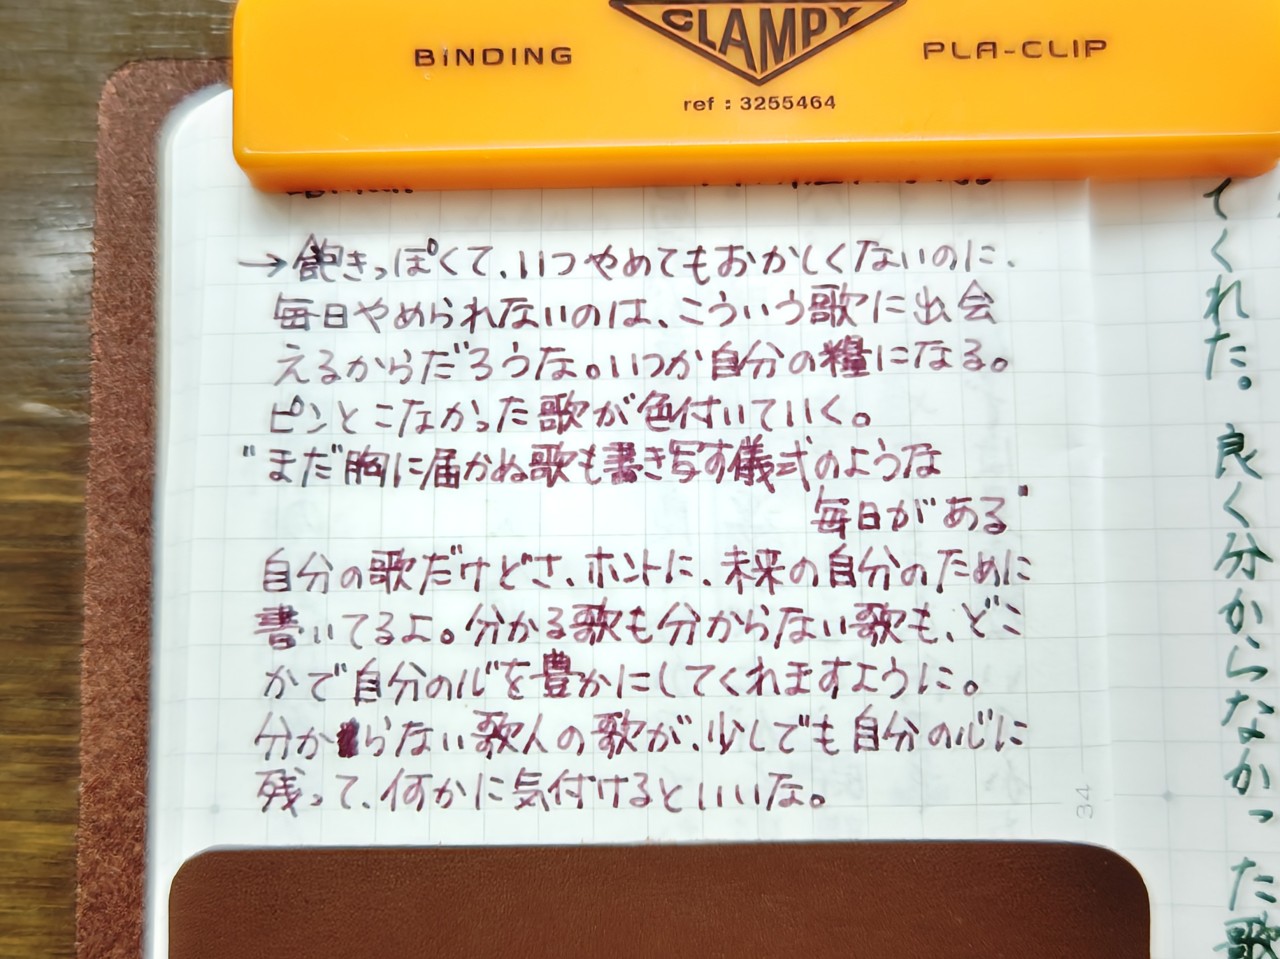 CLAMPY
BINDING
PLA-CLIP
ref : 3255464
→飽きっぽくて、いつやめてもおかしくないのに、
毎日やめられないのは、こういう歌に出会
えるからだろうな。いつか自分の糧になる。
ピンとこなかった歌が色付いていく。
"まだ胸に届かぬ歌も書き写す儀式のような
毎日がある"
自分の歌だけどさ、ホントに、未来の自分のために
書いてるよ。分かる歌も分からない歌も、どこ
かで自分の心を豊かにしてくれますように。
分からない歌人の歌が、少しでも自分の心に
残って、何かに気付けるといいな。
34
てくれた。良く分からなかった歌